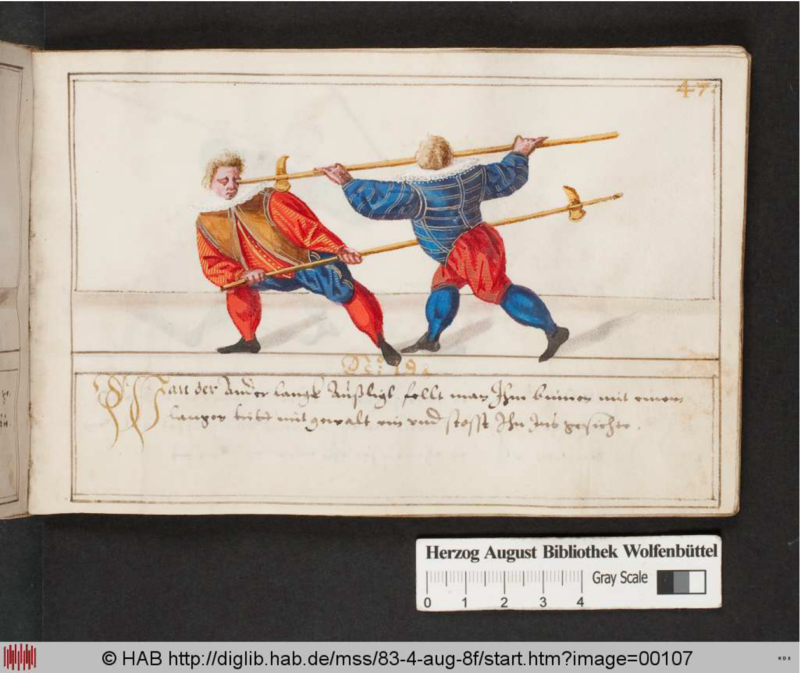 47.
No: 19.
Wan der Ander langk Außligt fellt man Ihm binnen mit einem
langen tritt mit gewalt ein und stosst Ihn Ins gesichte.
Herzog August Bibliothek Wolfenbüttel
Gray Scale
0 1 2 3 4
© HAB http://diglib.hab.de/mss/83-4-aug-8f/start.htm?image=00107